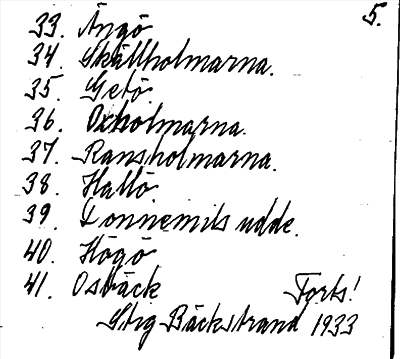 5.
33. Ängö
34. Skällholmarna.
35. Getö
36. Oxholmarna.
37. Ransholmarna.
38. Hallö
39. Donnemils udde.
40. Högö
41. Osbäck Forts!
Stig Bäckstrand 1933